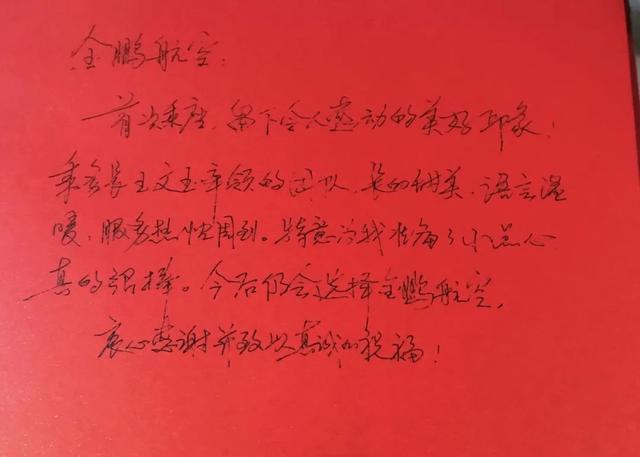 金鹏航空:
首次乘座,留下令人感动的美好印象!
乘务长王文玉率领的团队,长的甜美,语言温
暖,服务热忱周到。特意为我准备了小点心
真的很棒。今后仍会选择金鹏航空,
衷心感谢并致以真诚的祝福!